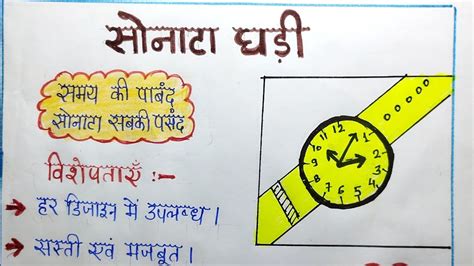 सोनाटा घड़ी
समय की पाबंद
सोनाटा सबकी पसंद
विशेषताएँ :-
→ हर डिजाइन में उपलब्ध।
→ सस्ती एवं मजबूत।
12
1
2
3
4
5
6
7
8
9
10
11